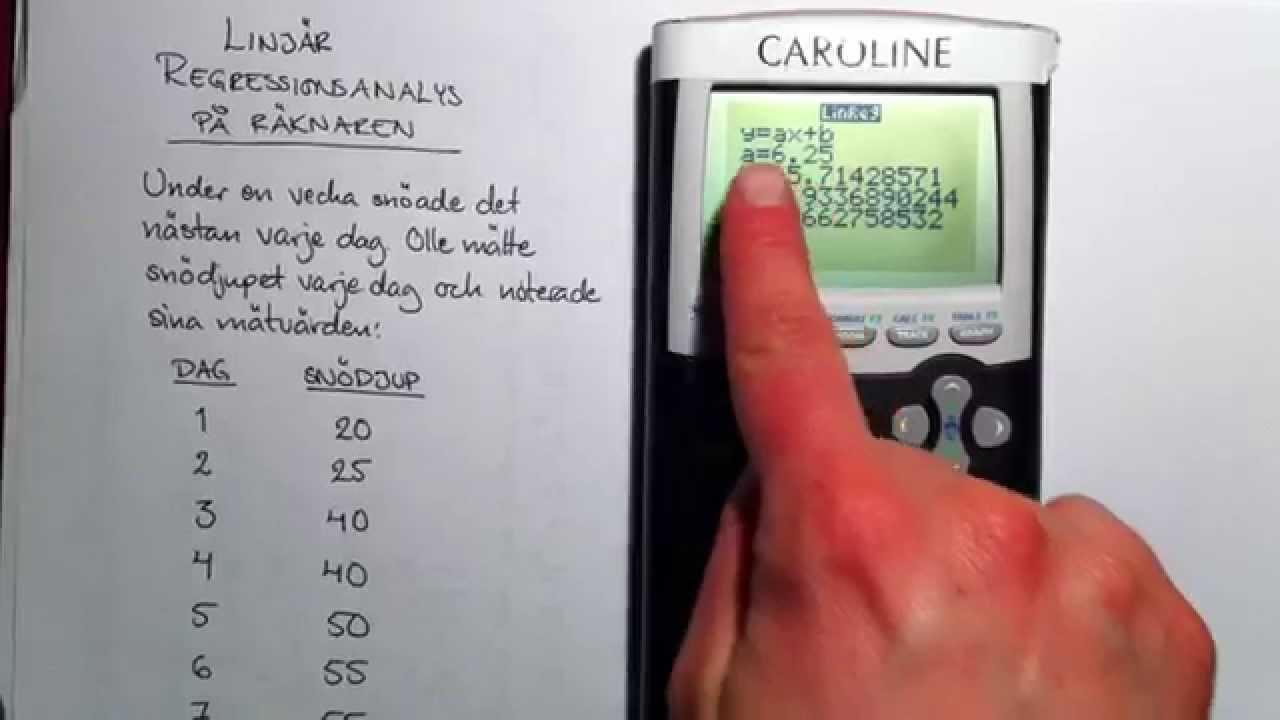 LINJÄR
REGRESSIONSANALYS
PÅ RÄKNAREN
Under en vecka snöade det
nästan varje dag. Olle mätte
snödjupet varje dag och noterade
sina mätvärden:
DAG SNÖDJUP
1 20
2 25
3 40
4 40
5 50
6 55
7 55
CAROLINE
LinReg
y=ax+b
a=6.25
5.71428571
9336890244
662758532
CALC F4 TABLE F5
TRACE GRAPH